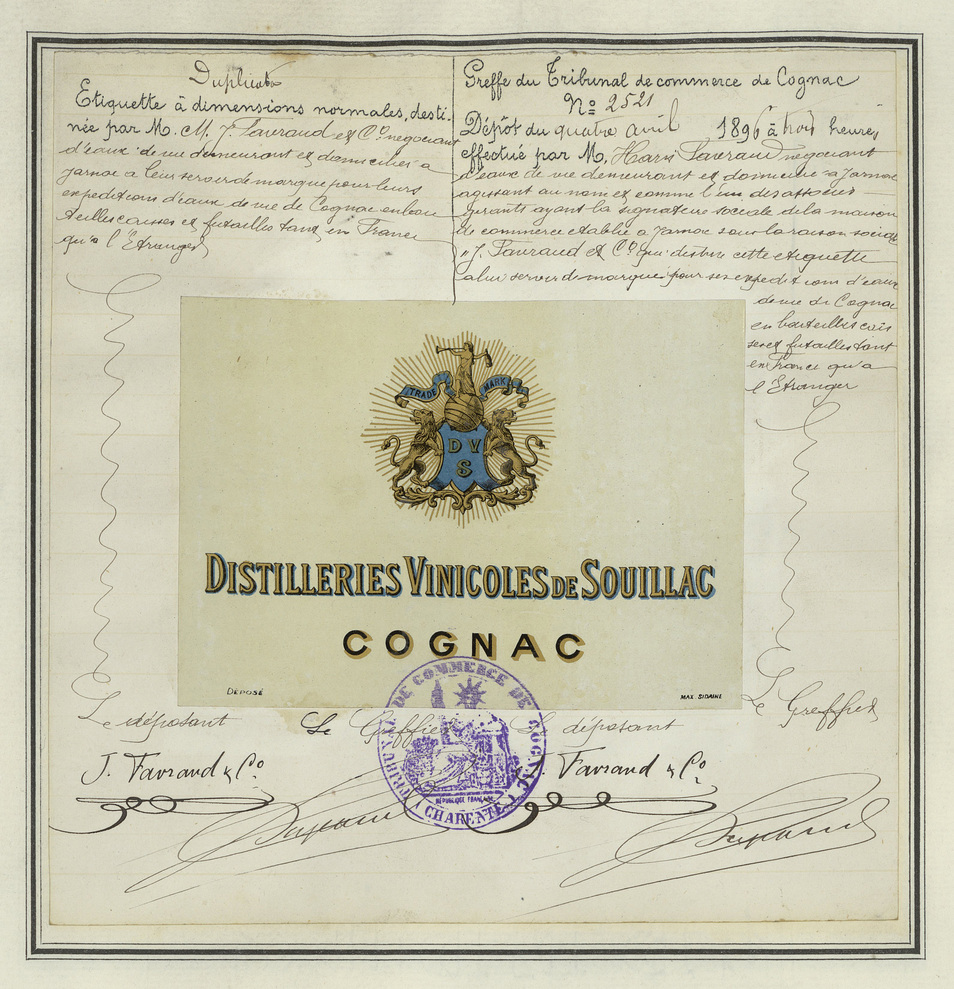 Duplicata
Etiquette à dimensions normales, desti-
née par M. M. J. Favraud et Cº negociant
d'eaux de vie demeurant et domiciliés à
Jarnac a leur servir de marque pour leurs
expeditions d'eaux de vie de Cognac en bou
teilles caisses et futailles tant en France
qu'a l'Etranger
Greffe du Tribunal de commerce de Cognac
Nº 2521
Dépôt du quatre avril 1896 à trois heures
effectué par M. Favraud negociant
d'eaux de vie demeurant et domicilié a Jarnac
agissant au nom et comme l'un des associés
gerants ayant la signature sociale de la maison
de commerce etablie a Jarnac sous la raison sociale
"J. Favraud et Cº qui destine cette etiquette
a lui servir de marque pour ses expeditions d'eaux
de vie de Cognac
en bouteilles cais
ses et futailles tant
en France qu'a
l'Etranger
TRADE MARK
D V
S
DISTILLERIES VINICOLES DE SOUILLAC
COGNAC
DÉPOSÉ
MAX. SIDAINE
Le déposant Le Greffier Le déposant Le Greffier
J. Favraud & Cº Favraud & Cº
TRIBUNAL DE COMMERCE DE COGNAC
RÉPUBLIQUE FRANÇAISE
(CHARENTE)